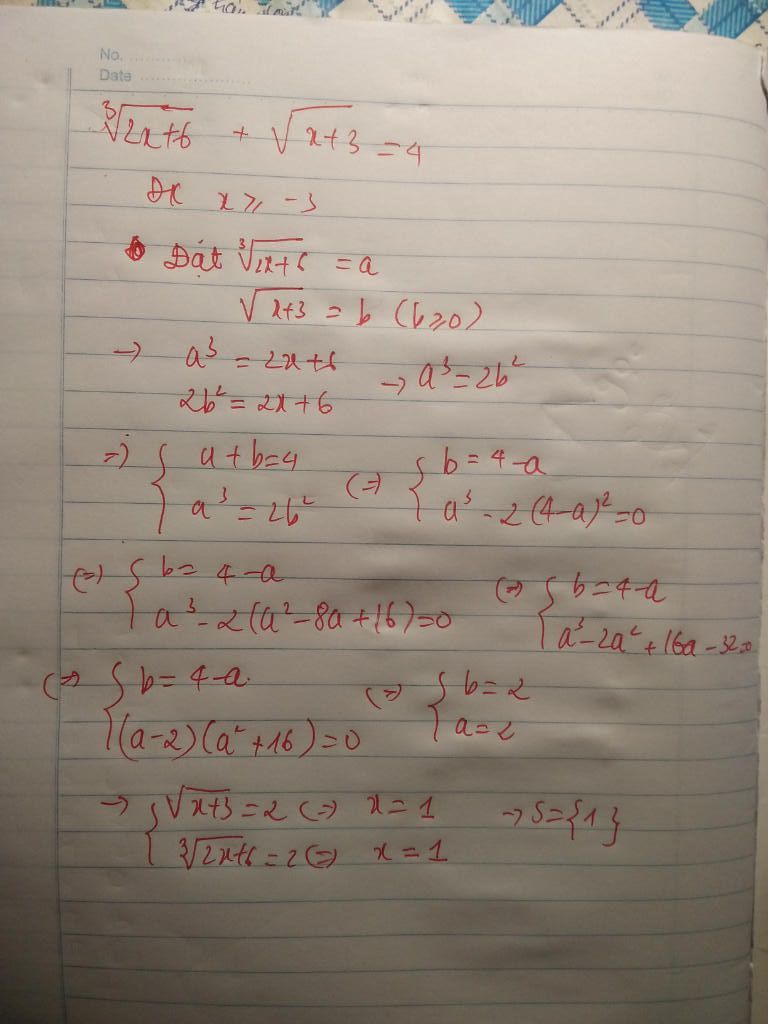 No. ....................
Date ....................
∛(2x+6) + √(x+3) = 4
ĐK x ≥ -3
Đặt ∛(2x+6) = a
√(x+3) = b (b ≥ 0)
→ a³ = 2x+6
2b² = 2x+6 → a³ = 2b²
=> { a + b = 4 (=) { b = 4-a
a³ = 2b² a³ - 2(4-a)² = 0
(=) { b = 4-a (=) { b = 4-a
a³ - 2(a² - 8a + 16) = 0 a³ - 2a² + 16a - 32 =
(=) { b = 4-a (=) { b = 2
(a-2)(a² + 16) = 0 a = 2
→ { √(x+3) = 2 (=) x = 1 → S = {1}
∛(2x+6) = 2 (=) x = 1